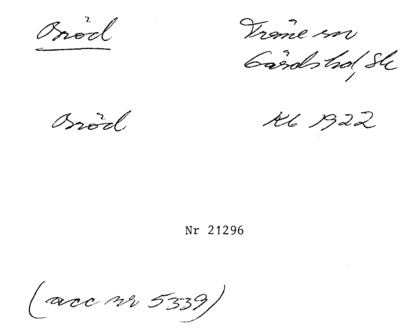 Bröd
Träne sn
Gärds hd, Sk
Bröd
Kb 1922
Nr 21296
(acc nr 5339)